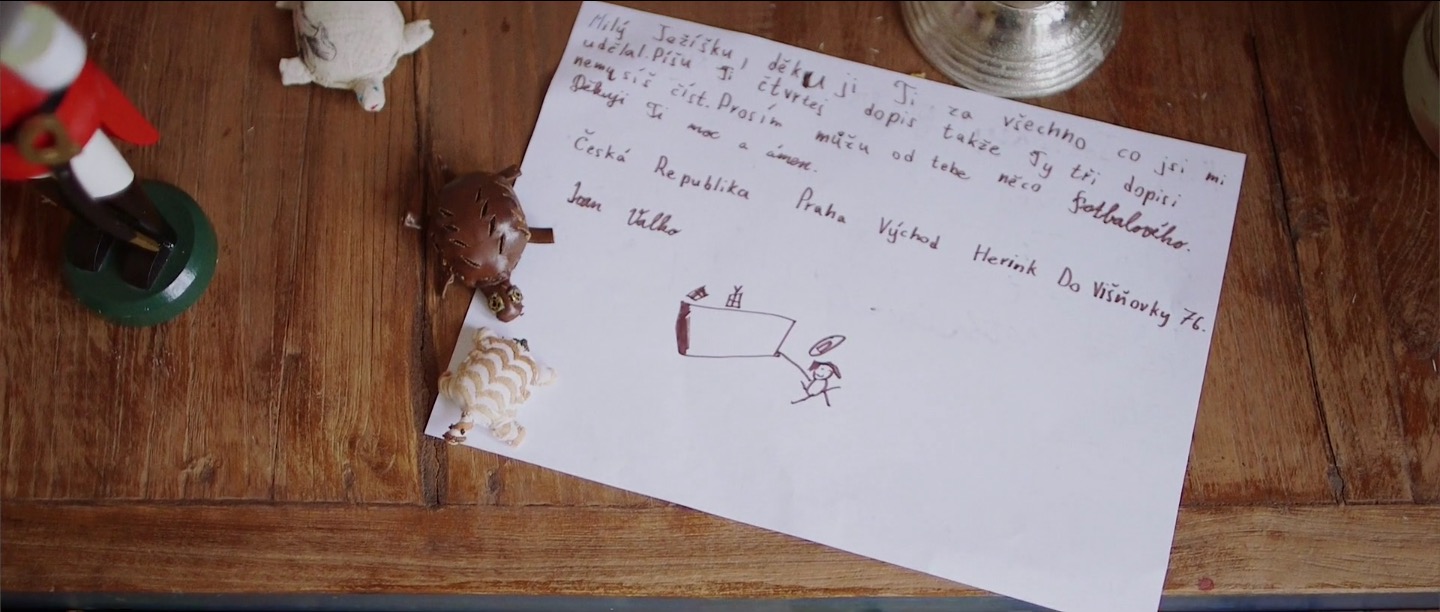 Milý Ježíšku, děkuji Ti za všechno co jsi mi
udělal. Píšu Ti čtvrteš dopis takže Ty tři dopisi
nemusíš číst. Prosím můžu od tebe něco fotbalového.
Děkuji Ti moc a ámen.
Česká Republika Praha Východ Herink Do Višňovky 76.
Ivan Valko